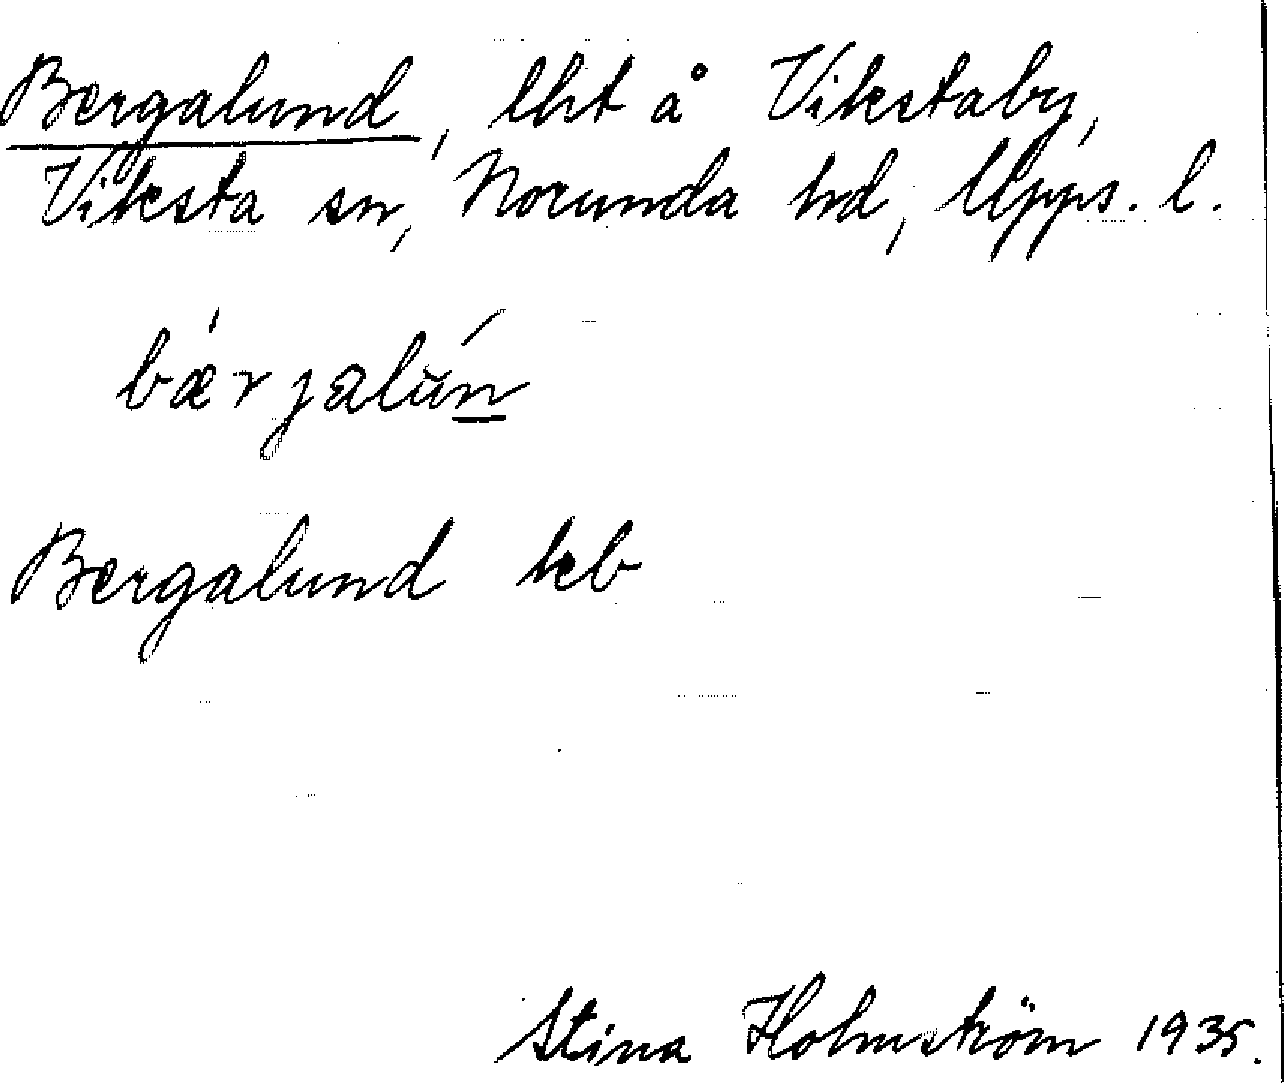 Bergalund, lht å Vikstaby,
Viksta sn, Norunda hd, Upps. l.
bæ̀rjalún
Bergalund kb
Stina Holmström 1935.